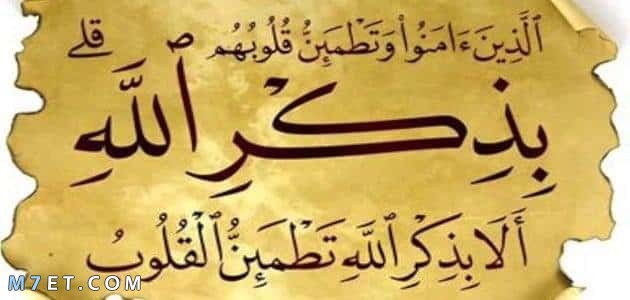 ٱلَّذِينَ ءَامَنُوا۟ وَتَطْمَئِنُّ قُلُوبُهُم قلے
بِذِكْرِ ٱللَّهِ
أَلَا بِذِكْرِ ٱللَّهِ تَطْمَئِنُّ ٱلْقُلُوبُ
M7ET.COM